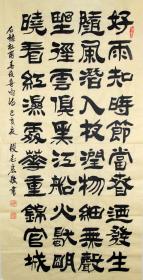 好雨知時節當春迺發生
隨風潛入夜潤物細無聲
野徑雲俱黑江船火獨明
曉看紅濕處華重錦官城
右録杜甫春夜喜雨詩